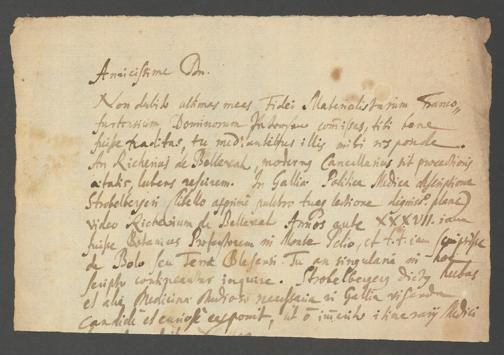 Amicissime Dn.
Non dubito ultimas meas, Fidei Materialistarum Franco-
furtensium Dominorum commissas, tibi bene
fuisse traditas, tu mediantibus illis mihi responde.
An Richerius de Belleval, modernus Cancellarius sit
aetatis, lubens rescirem. In Gallia Politica Medica descriptione
Strobelbergeri libello tuae lectione
video Richerium de Belleval Annos ante XXXVII. iam
fuisse Botanices Professorem in Monte Pelio, et t.t. iam scripsisse
de Bolo seu Terra Blesensi. Tu an singularia in hoc
scripto contineantur inquire. Strobelbergerg dictg herbas
et alia Medicinae studioso necessaria in Gallia visenda
candide et curiose exponit, ut itinerarij Medici